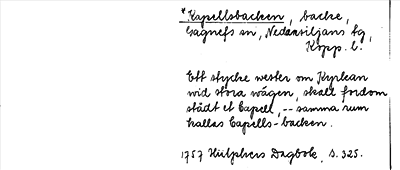 *Kapellsbacken, backe,
Gagnefs sn, Nedansiljans fg,
Kopp. l.
Ett stycke wester om Kyrkan
wid stora wägen, skall fordom
städt et Capell, -- samma rum
kallas Capells-backen.
1757 Hülphers Dagbok, s. 325.